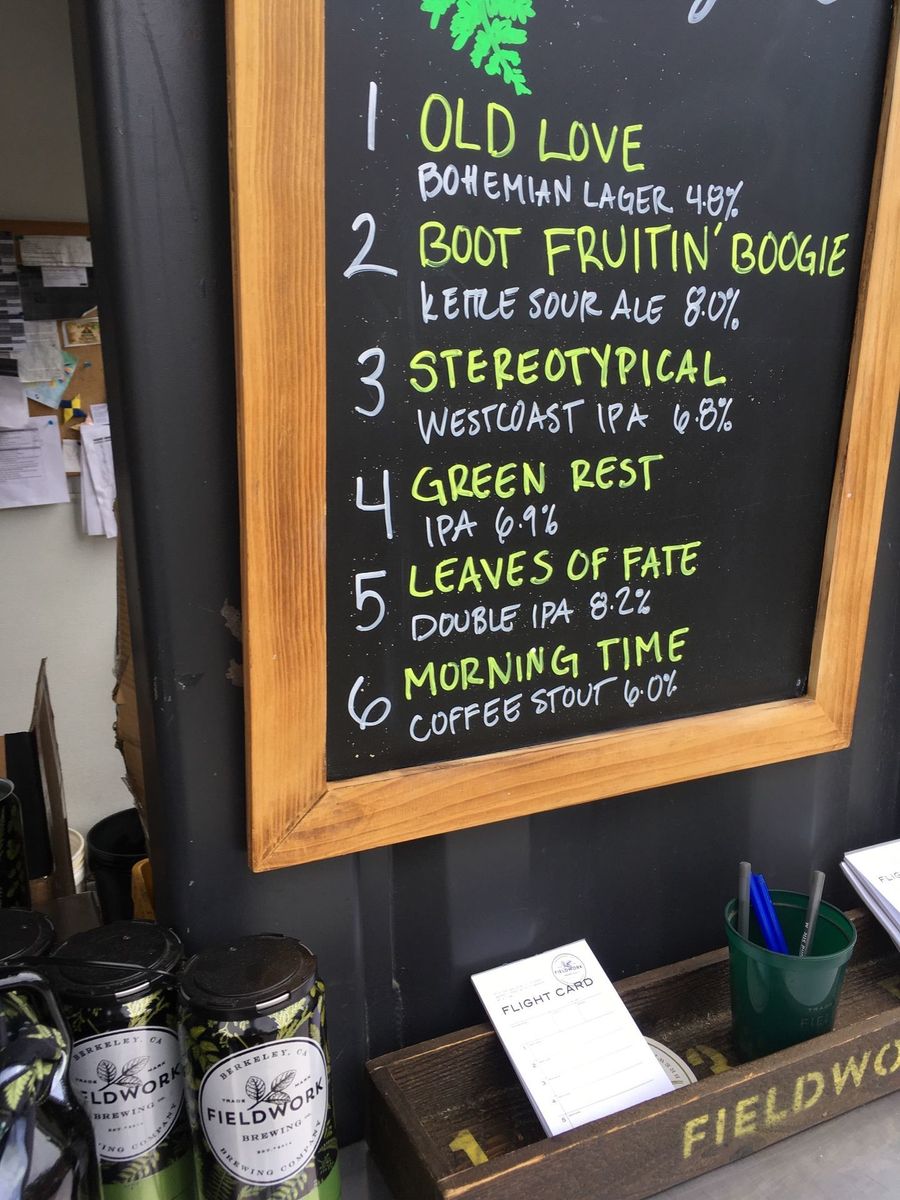 1 OLD LOVE
BOHEMIAN LAGER 4.8%
2 BOOT FRUITIN' BOOGIE
KETTLE SOUR ALE 8.0%
3 STEREOTYPICAL
WESTCOAST IPA 6.8%
4 GREEN REST
IPA 6.9%
5 LEAVES OF FATE
DOUBLE IPA 8.2%
6 MORNING TIME
COFFEE STOUT 6.0%
FIELDWORK
FLIGHT CARD
1
2
3
4
5
FLIG
BERKELEY, CA
TRADE MARK
ELDWORK
BREWING CO.
ING COMPANY
BERKELEY, CA
TRADE MARK
FIELDWORK
BREWING CO.
BREWING COMPANY
1
2
FIELDWO